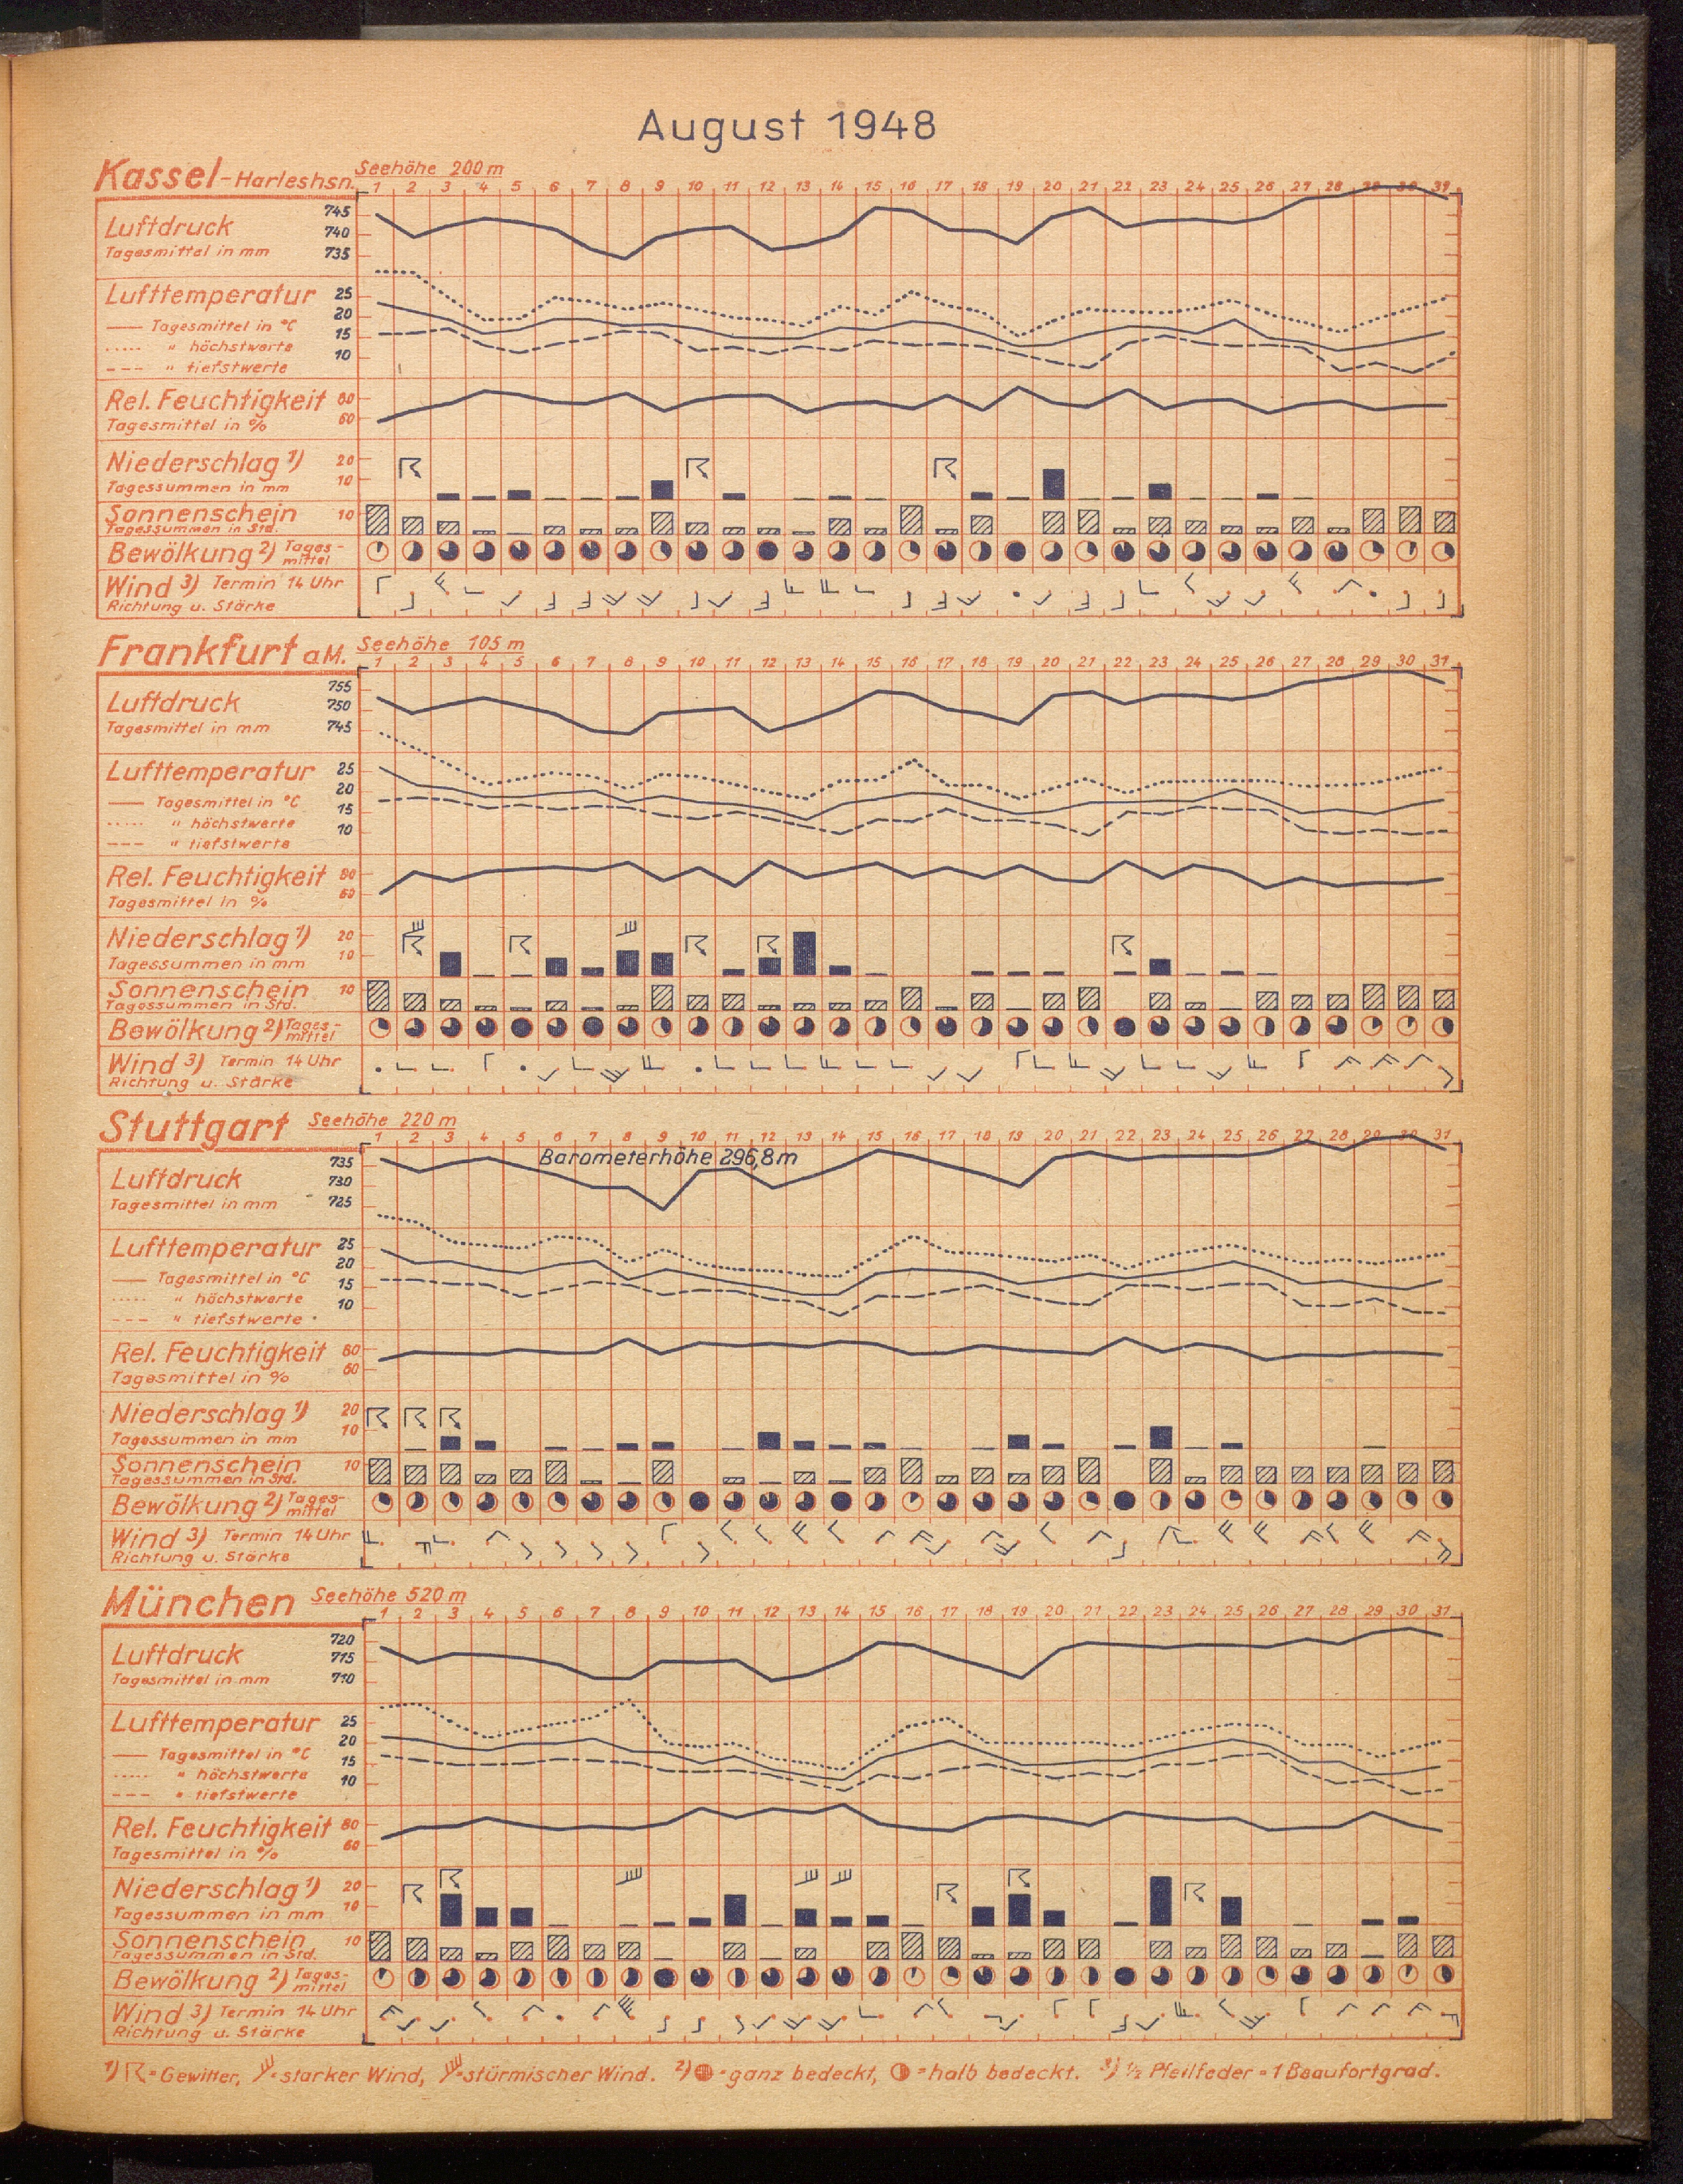 August 1948
Kassel-Harleshsn. Seehöhe 200 m
1 2 3 4 5 6 7 8 9 10 11 12 13 14 15 16 17 18 19 20 21 22 23 24 25 26 27 28 29 30 31
Luftdruck 745
740
Tagesmittel in mm 735
Lufttemperatur 25
20
Tagesmittel in °C 15
" höchstwerte 10
" tiefstwerte
Rel. Feuchtigkeit 80
Tagesmittel in % 60
Niederschlag 1) 20
Tagessummen in mm 10
Sonnenschein 10
Tagessummen in Std.
Bewölkung 2) Tages-
mittel
Wind 3) Termin 14 Uhr
Richtung u. Stärke
Frankfurt a.M. Seehöhe 105 m
1 2 3 4 5 6 7 8 9 10 11 12 13 14 15 16 17 18 19 20 21 22 23 24 25 26 27 28 29 30 31
Luftdruck 755
750
Tagesmittel in mm 745
Lufttemperatur 25
20
Tagesmittel in °C 15
" höchstwerte 10
" tiefstwerte
Rel. Feuchtigkeit 80
Tagesmittel in % 60
Niederschlag 1) 20
Tagessummen in mm 10
Sonnenschein 10
Tagessummen in Std.
Bewölkung 2) Tages-
mittel
Wind 3) Termin 14 Uhr
Richtung u. Stärke
Stuttgart Seehöhe 220 m
1 2 3 4 5 6 7 8 9 10 11 12 13 14 15 16 17 18 19 20 21 22 23 24 25 26 27 28 29 30 31
Barometerhöhe 296,8 m
Luftdruck 735
730
Tagesmittel in mm 725
Lufttemperatur 25
20
Tagesmittel in °C 15
" höchstwerte 10
" tiefstwerte
Rel. Feuchtigkeit 80
Tagesmittel in % 60
Niederschlag 1) 20
Tagessummen in mm 10
Sonnenschein 10
Tagessummen in Std.
Bewölkung 2) Tages-
mittel
Wind 3) Termin 14 Uhr
Richtung u. Stärke
München Seehöhe 520 m
1 2 3 4 5 6 7 8 9 10 11 12 13 14 15 16 17 18 19 20 21 22 23 24 25 26 27 28 29 30 31
Luftdruck 720
715
Tagesmittel in mm 710
Lufttemperatur 25
20
Tagesmittel in °C 15
" höchstwerte 10
" tiefstwerte
Rel. Feuchtigkeit 80
Tagesmittel in % 60
Niederschlag 1) 20
Tagessummen in mm 10
Sonnenschein 10
Tagessummen in Std.
Bewölkung 2) Tages-
mittel
Wind 3) Termin 14 Uhr
Richtung u. Stärke
1) = Gewitter, = starker Wind, = stürmischer Wind. 2) = ganz bedeckt, = halb bedeckt. 3) ½ Pfeilfeder = 1 Beaufortgrad.